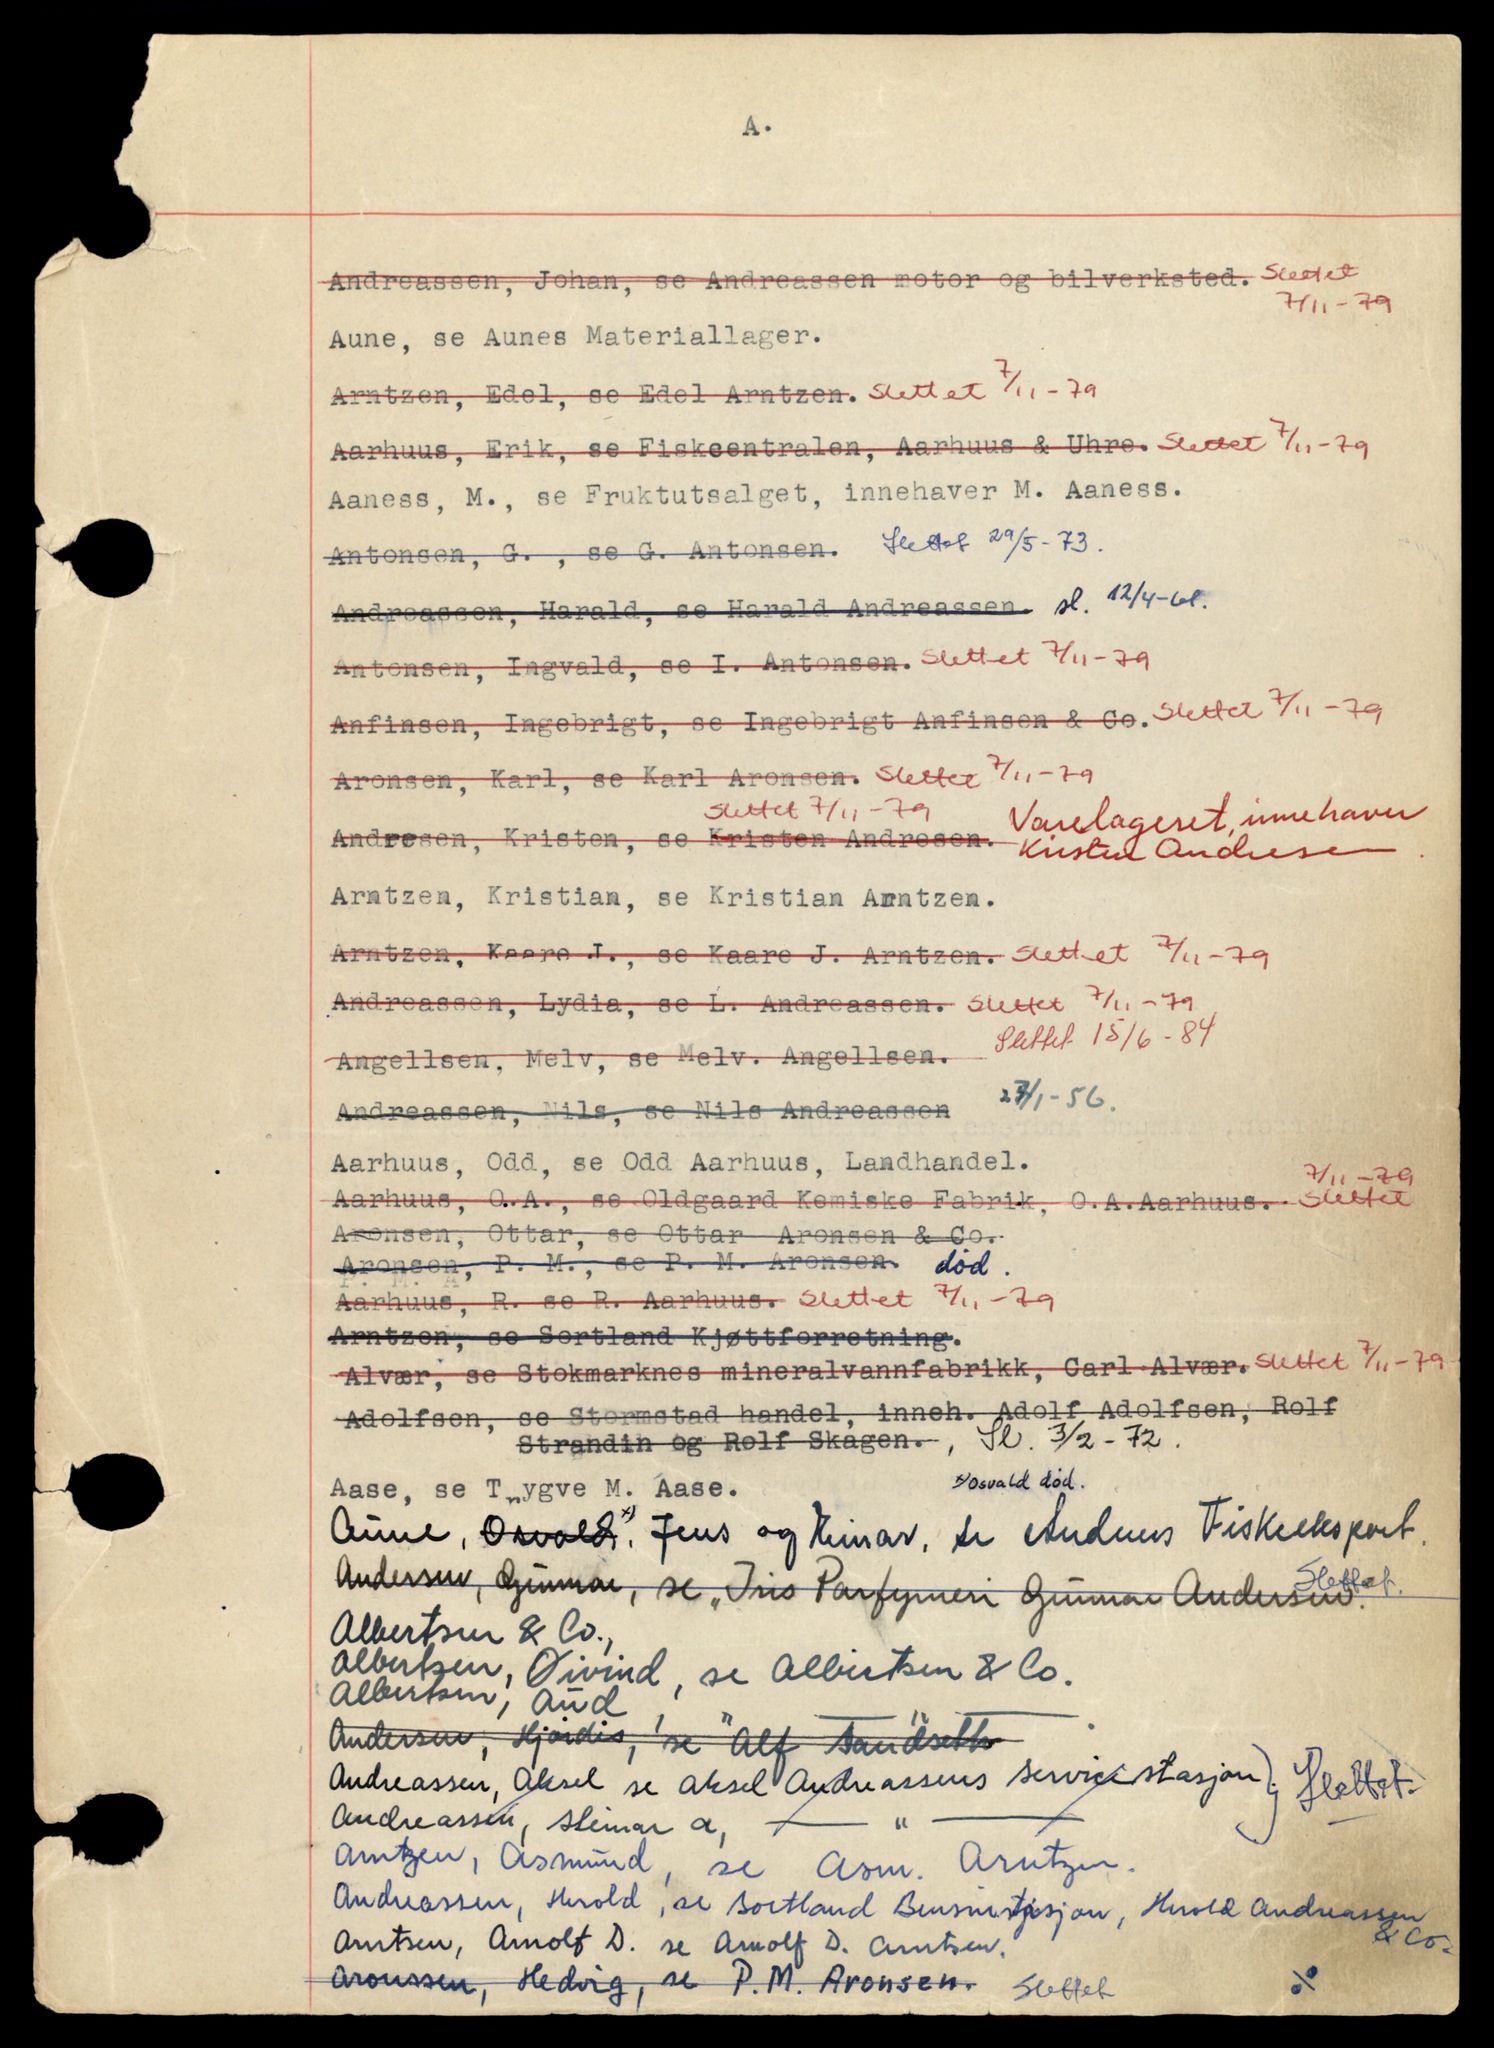 A.
Andreassen, Johan, se Andreassen motor og bilverksted. Slettet
7/11-79
Aune, se Aunes Materiallager.
Arntzen, Edel, se Edel Arntzen. Slettet 7/11-79
Aarhuus, Erik, se Fiskcentralen, Aarhuus & Uhre. Slettet 7/11-79
Aaness, M., se Fruktutsalget, innehaver M. Aaness.
Antonsen, G. , se G. Antonsen. Slettet 29/5-73.
Andreassen, Harald, se Harald Andreassen. sl. 12/4-61.
Antonsen, Ingvald, se I. Antonsen. Slettet 7/11-79
Anfinsen, Ingebrigt, se Ingebrigt Anfinsen & Co. Slettet 7/11-79
Aronsen, Karl, se Karl Aronsen. Slettet 7/11-79
Slettet 7/11-79
Andresen, Kristen, se Kristen Andresen. Varelageret, innehaver
Kristen Andresen
Arntzen, Kristian, se Kristian Arntzen.
Arntzen, Kaare J., se Kaare J. Arntzen. Slettet 7/11-79
Andreassen, Lydia, se L. Andreassen. Slettet 7/11-79
Angellsen, Melv, se Melv. Angellsen. Slettet 15/6-84
Andreassen, Nils, se Nils Andreassen 27/1-56.
Aarhuus, Odd, se Odd Aarhuus, Landhandel.
7/11-79
Aarhuus, O.A., se Oldgaard Kemiske Fabrik, O.A.Aarhuus. Slettet
Aronsen, Ottar, se Ottar Aronsen & Co.
Aronsen, P. M., se P. M. Aronsen. død.
Aarhuus, R. se R. Aarhuus. Slettet 7/11-79
Arntzen, se Sortland Kjøttforretning.
Alvær, se Stokmarknes mineralvannfabrikk, Carl Alvær. Slettet 7/11-79
Adolfsen, se Stormstad handel, inneh. Adolf Adolfsen, Rolf
Strandin og Rolf Skagen. , Sl. 3/2-72.
Aase, se T„ygve M. Aase. x) Osvald død.
Aune, Osvald x), Jens og Heimar, se Andenes Fiskeeksport.
Andersen, Gunnar, se "Iris Parfymeri Gunnar Andersen. Slettet.
Albertsen & Co.,
Albertsen, Øivind, se Albertsen & Co.
Albertsen, Aud, — " —
Andersen, Hjørdis, se Alf Sandseth
Andreassen, Aksel se Aksel Andreassens servicestasjon } Slettet.
Andreassen, Steinar A, — " —
Arntzen, Asmund, se Asm. Arntzen.
Andreassen, Herold, se Sortland Bensinstasjon, Herold Andreassen
& Co.
Arntsen, Arnolf D. se Arnolf D. Arntsen.
Aronssen, Hedvig, se P.M. Aronsen. Slettet ./.